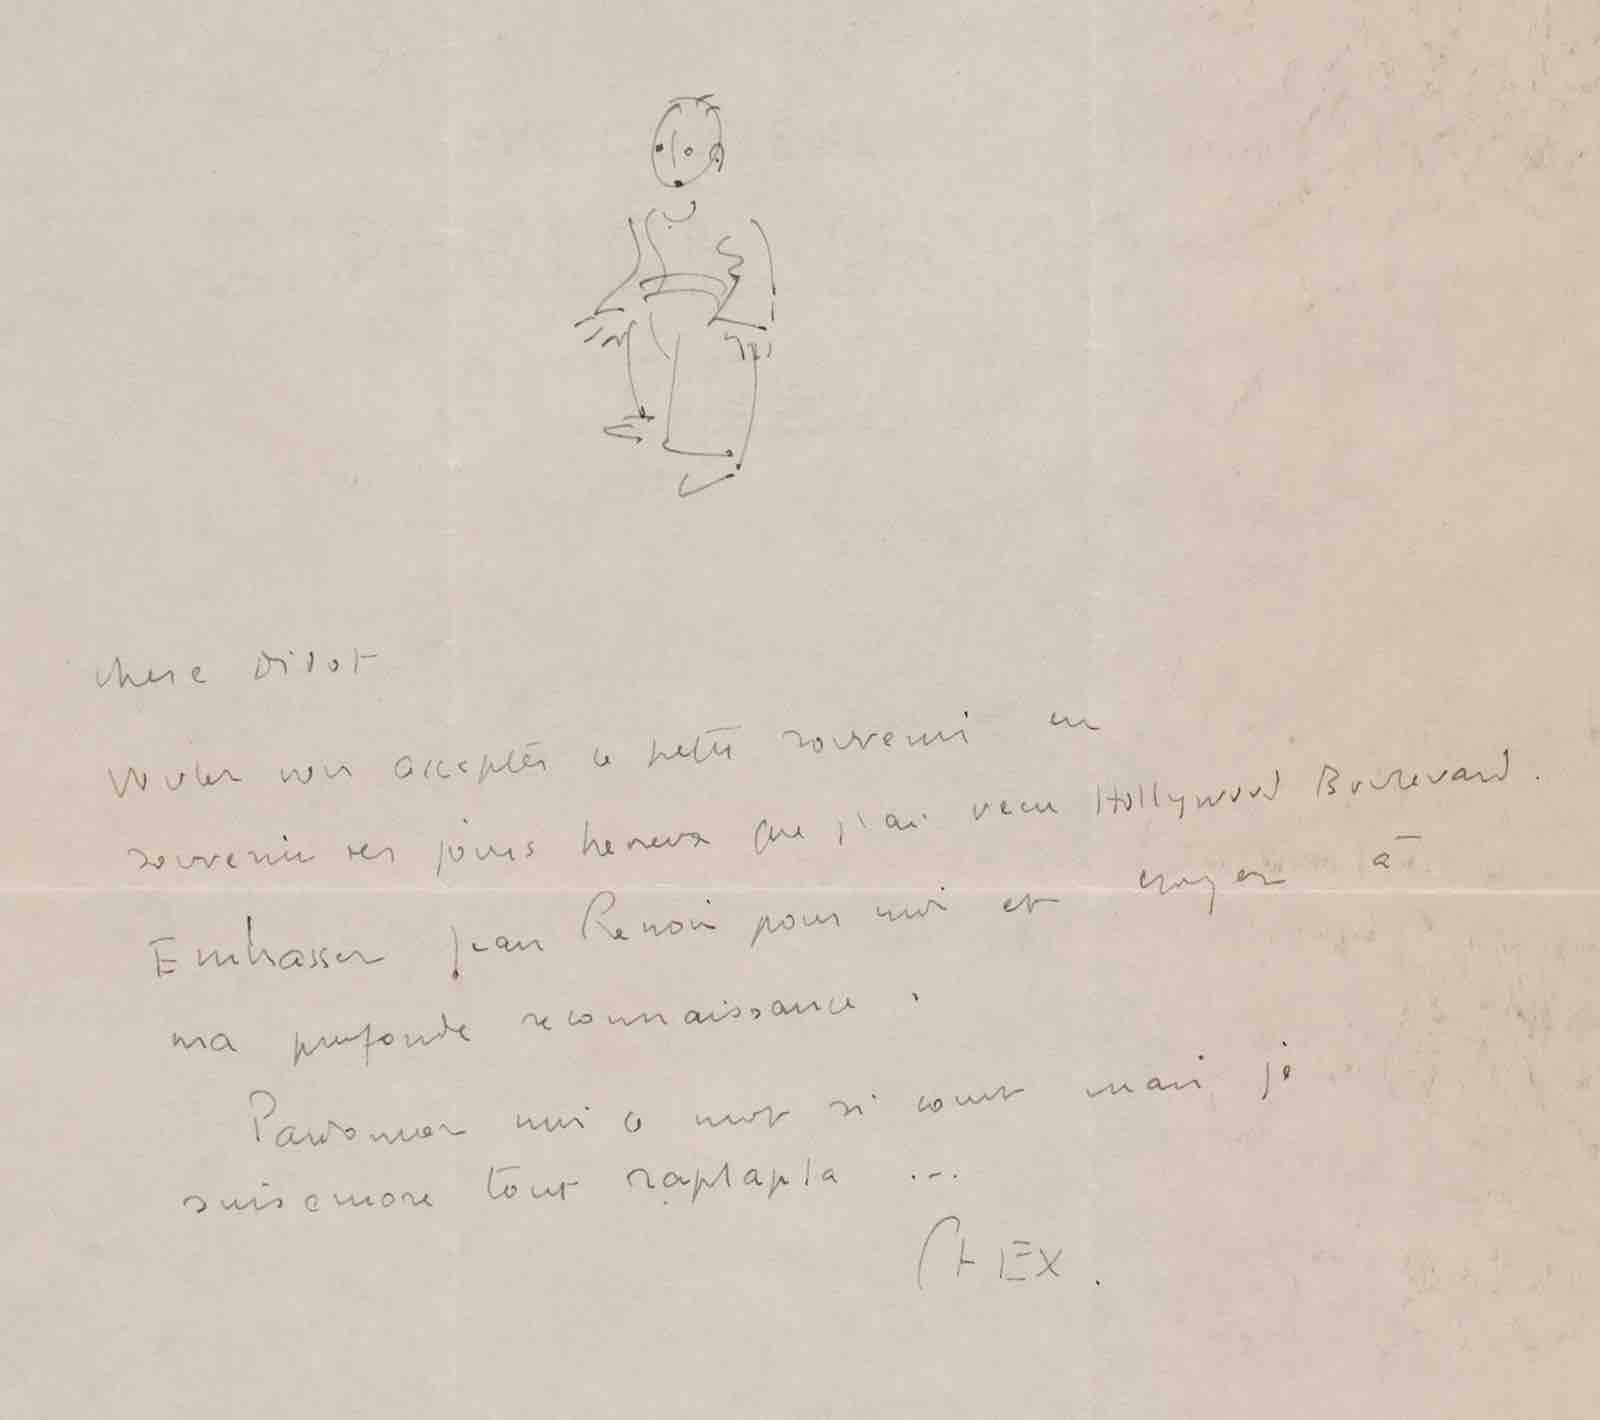 Chère Didot
Voulez vous acceptés ce petit souvenir en
souvenir des jours heureux que j'ai vecu Hollywood Boulevard.
Embrassez Jean Renoir pour moi et croyez à
ma profonde reconnaissance.
Pardonnez moi ce mot si court mais je
suis encore tout raplapla ...
St EX.